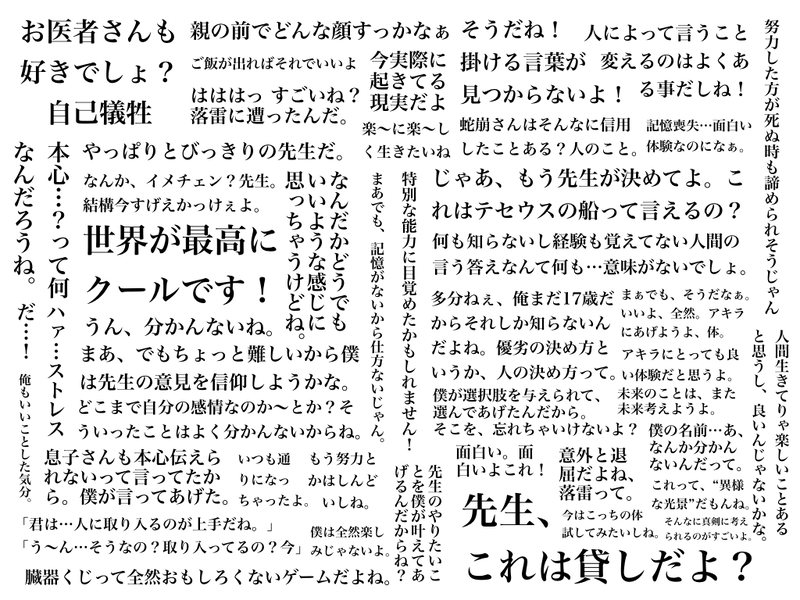 お医者さんも
好きでしょ？
自己犠牲
親の前でどんな顔すっかなぁ
ご飯が出ればそれでいいよ
はははっ すごいね？
落雷に遭ったんだ。
今実際に
起きてる
現実だよ
楽〜に楽〜し
く生きたいね
そうだね！
掛ける言葉が
見つからないよ！
人によって言うこと
変えるのはよくあ
る事だしね！
蛇崩さんはそんなに信用
したことある？人のこと。
記憶喪失…面白い
体験なのになぁ。
努力した方が死ぬ時も諦められそうじゃん
本心…？って何
なんだろうね。
だ…！
ハァ…ストレス
俺もいいことした気分。
やっぱりとびっきりの先生だ。
なんか、イメチェン？先生。
結構今すげえかっけぇよ。
世界が最高に
クールです！
なんだかどうでも
いいような感じに
思っちゃうけどね。
うん、分かんないね。
まあ、でもちょっと難しいから僕
は先生の意見を信仰しようかな。
どこまで自分の感情なのか〜とか？そ
ういったことはよく分かんないからね。
まあでも、記憶がないから仕方ないじゃん。
特別な能力に目覚めたかもしれません！
じゃあ、もう先生が決めてよ。こ
れはテセウスの船って言えるの？
何も知らないし経験も覚えてない人間の
言う答えなんて何も…意味がないでしょ。
多分ねぇ、俺まだ17歳だ
からそれしか知らないん
だよね。優劣の決め方と
いうか、人の決め方って。
まぁでも、そうだなぁ。
いいよ、全然。アキラ
にあげようよ、体。
アキラにとっても良
い体験だと思うよ。
僕が選択肢を与えられて、
選んであげたんだから。
未来のことは、また
未来考えようよ。
そこを、忘れちゃいけないよ？
人間生きてりゃ楽しいことある
と思うし、良いんじゃないかな。
息子さんも本心伝えら
れないって言ってたか
ら。僕が言ってあげた。
いつも通
りになっ
ちゃったよ。
もう努力と
かはしんど
いしね。
先生のやりたいこ
とを僕が叶えてあ
げるんだからね？
面白い。面
白いよこれ！
意外と退
屈だよね、
落雷って。
僕の名前…あ、
なんか分かん
ないんだって。
これって、“異様
な光景”だもんね。
先生、
今はこっちの体
試してみたいしね。
そんなに真剣に考え
られるのがすごいよ。
「君は…人に取り入るのが上手だね。」
「う〜ん…そうなの？取り入ってるの？今」
僕は全然楽し
みじゃないよ。
臓器くじって全然おもしろくないゲームだよね。
これは貸しだよ？